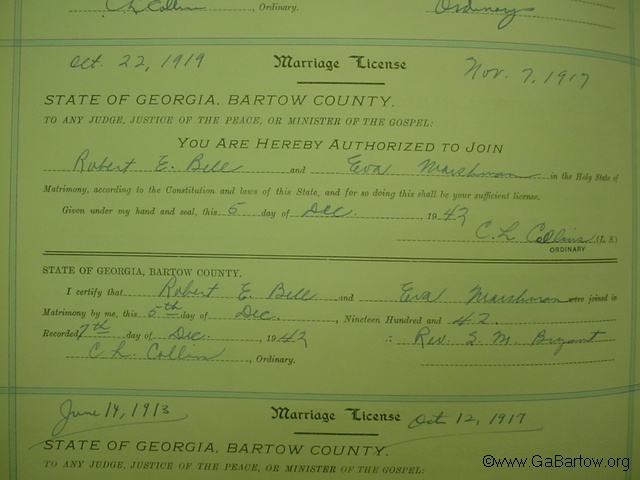 C. L. Collins, Ordinary. Ordinary
Oct. 22, 1919 Marriage License Nov. 7, 1917
STATE OF GEORGIA, BARTOW COUNTY.
TO ANY JUDGE, JUSTICE OF THE PEACE, OR MINISTER OF THE GOSPEL:
YOU ARE HEREBY AUTHORIZED TO JOIN
Robert E. Bell and Eva Marshman in the Holy State of
Matrimony, according to the Constitution and laws of this State, and for so doing this shall be your sufficient license.
Given under my hand and seal, this 5 day of Dec. 1942
C. L. Collins (L. S.)
ORDINARY
STATE OF GEORGIA, BARTOW COUNTY.
I certify that Robert E. Bell and Eva Marshman were joined in
Matrimony by me, this 5th day of Dec. Nineteen Hundred and 42
Recorded 7th day of Dec. 1942 Rev. S. M. Bryant
C. L. Collins, Ordinary.
June 14, 1913 Marriage License Oct 12, 1917
STATE OF GEORGIA, BARTOW COUNTY.
TO ANY JUDGE, JUSTICE OF THE PEACE, OR MINISTER OF THE GOSPEL:
©www.GaBartow.org